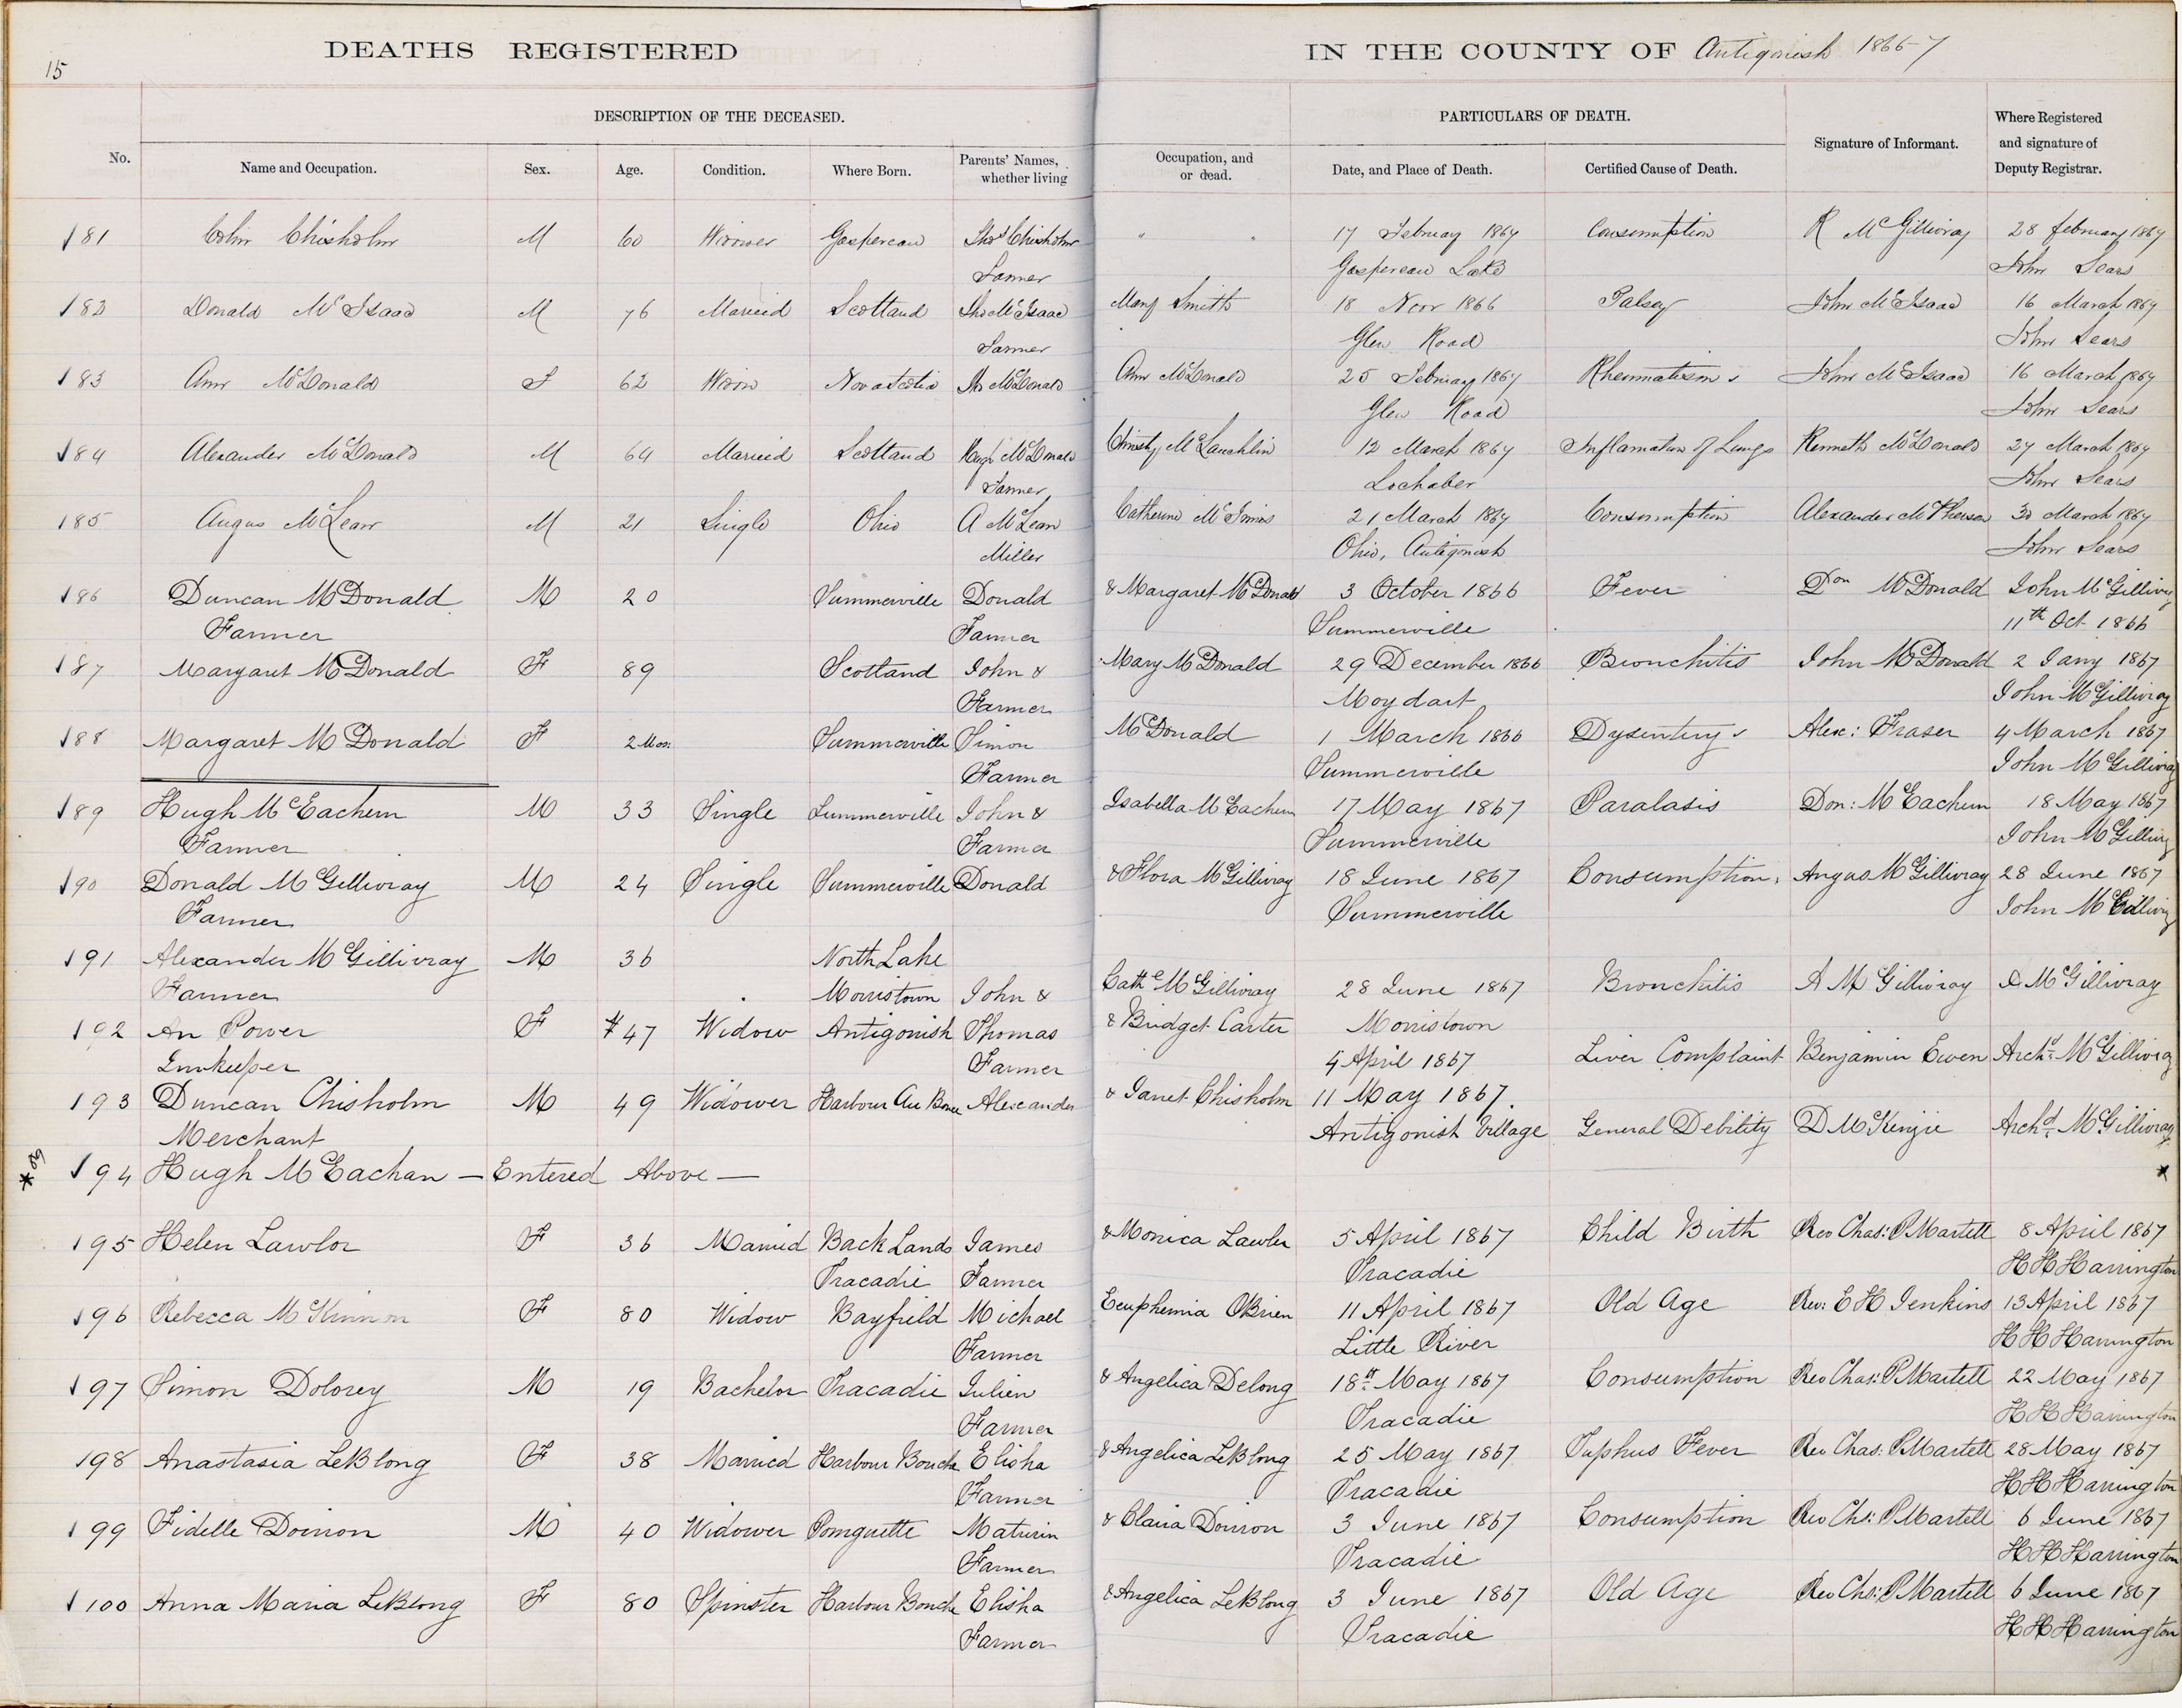 15
DEATHS REGISTERED IN THE COUNTY OF Antigonish 1866-7
DESCRIPTION OF THE DECEASED. PARTICULARS OF DEATH.
No. Name and Occupation. Sex. Age. Condition. Where Born. Parents' Names, whether living Occupation, and or dead. Date, and Place of Death. Certified Cause of Death. Signature of Informant. Where Registered and signature of Deputy Registrar.
181 Colin Chisholm M 60 Widower Gaspereau Thos Chisholm " " 17 February 1867 Consumption R McGillivray 28 february 1867
Farmer Gaspereau Lake John Sears
182 Donald McIsaac M 76 Married Scotland Jno McIsaac Mary Smith 18 Novr 1866 Palsey John McIsaac 16 March 1867
Farmer Glen Road John Sears
183 Ann McDonald F 62 Widow Novascotia McDonald Ann McDonald 25 February 1867 Rheumatism John McIsaac 16 March 1867
Glen Road John Sears
184 Alexander McDonald M 64 Married Scotland Hugh McDonald Christy McLauchlin 12 March 1867 Inflamation of Lungs Kenneth McDonald 27 March 1867
Farmer Lochaber John Sears
185 Angus McLean M 21 Single Ohio A McLean Catherine McInnis 21 March 1867 Consumption Alexander McPherson 30 March 1867
Miller Ohio, Antigonish John Sears
186 Duncan McDonald M 20 Summerville Donald & Margaret McDonald 3 October 1866 Fever Don McDonald John McGillivray
Farmer Farmer Summerville 11th Oct 1866
187 Margaret McDonald F 89 Scotland John & Mary McDonald 29 December 1866 Bronchitis John McDonald 2 Jany 1867
Farmer Moydart John McGillivray
188 Margaret McDonald F 2 Mos: Summerville Simon McDonald 1 March 1866 Dysentery Alex: Fraser 4 March 1867
Farmer Summerville John McGillivray
189 Hugh McEachern M 33 Single Summerville John & Isabella McEachern 17 May 1867 Paralasis Don: McEachern 18 May 1867
Farmer Farmer Summerville John McGillivray
190 Donald McGillivray M 24 Single Summerville Donald & Flora McGillivray 18 June 1867 Consumption Angus McGillivray 28 June 1867
Farmer Summerville John McGillivray
191 Alexander McGillivray M 36 North Lake
Farmer Morristown John & Cathe McGillivray 28 June 1867 Bronchitis A McGillivray A McGillivray
192 An Power F 47 Widow Antigonish Thomas & Bridget Carter Morristown
Innkeeper Farmer 4 April 1867 Liver Complaint Benjamin Ewen Archd McGillivray
193 Duncan Chisholm M 49 Widower Harbour Au Bouce Alexander & Janet Chisholm 11 May 1867.
Merchant Antigonish Village General Debility D McKenzie Archd McGillivray
* 89 194 Hugh McEachan — Entered Above — *
195 Helen Lawlor F 36 Married Back Lands James & Monica Lawler 5 April 1867 Child Birth Rev Chas: P Martell 8 April 1867
Tracadie Farmer Tracadie H H Harrington
196 Rebecca McKinnon F 80 Widow Bayfield Michael Eeuphemia OBrien 11 April 1867 Old Age Rev: E H Jenkins 13 April 1867
Farmer Little River H H Harrington
197 Simon Dolorey M 19 Bachelor Tracadie Julien & Angelica Delong 18th May 1867 Consumption Rev Chas: P Martell 22 May 1867
Farmer Tracadie H H Harrington
198 Anastasia LeBlong F 38 Married Harbour Bouche Elisha & Angelica LeBlong 25 May 1867 Typhus Fever Rev Chas: P Martell 28 May 1867
Farmer Tracadie H H Harrington
199 Fidelle Doiron M 40 Widower Pomquette Maturin & Claria Doiron 3 June 1867 Consumption Rev Chs: P Martell 6 June 1867
Farmer Tracadie H H Harrington
100 Anna Maria LeBlong F 80 Spinster Harbour Bouche Elisha & Angelica LeBlong 3 June 1867 Old Age Rev Chs: P Martell 6 June 1867
Farmer Tracadie H H Harrington